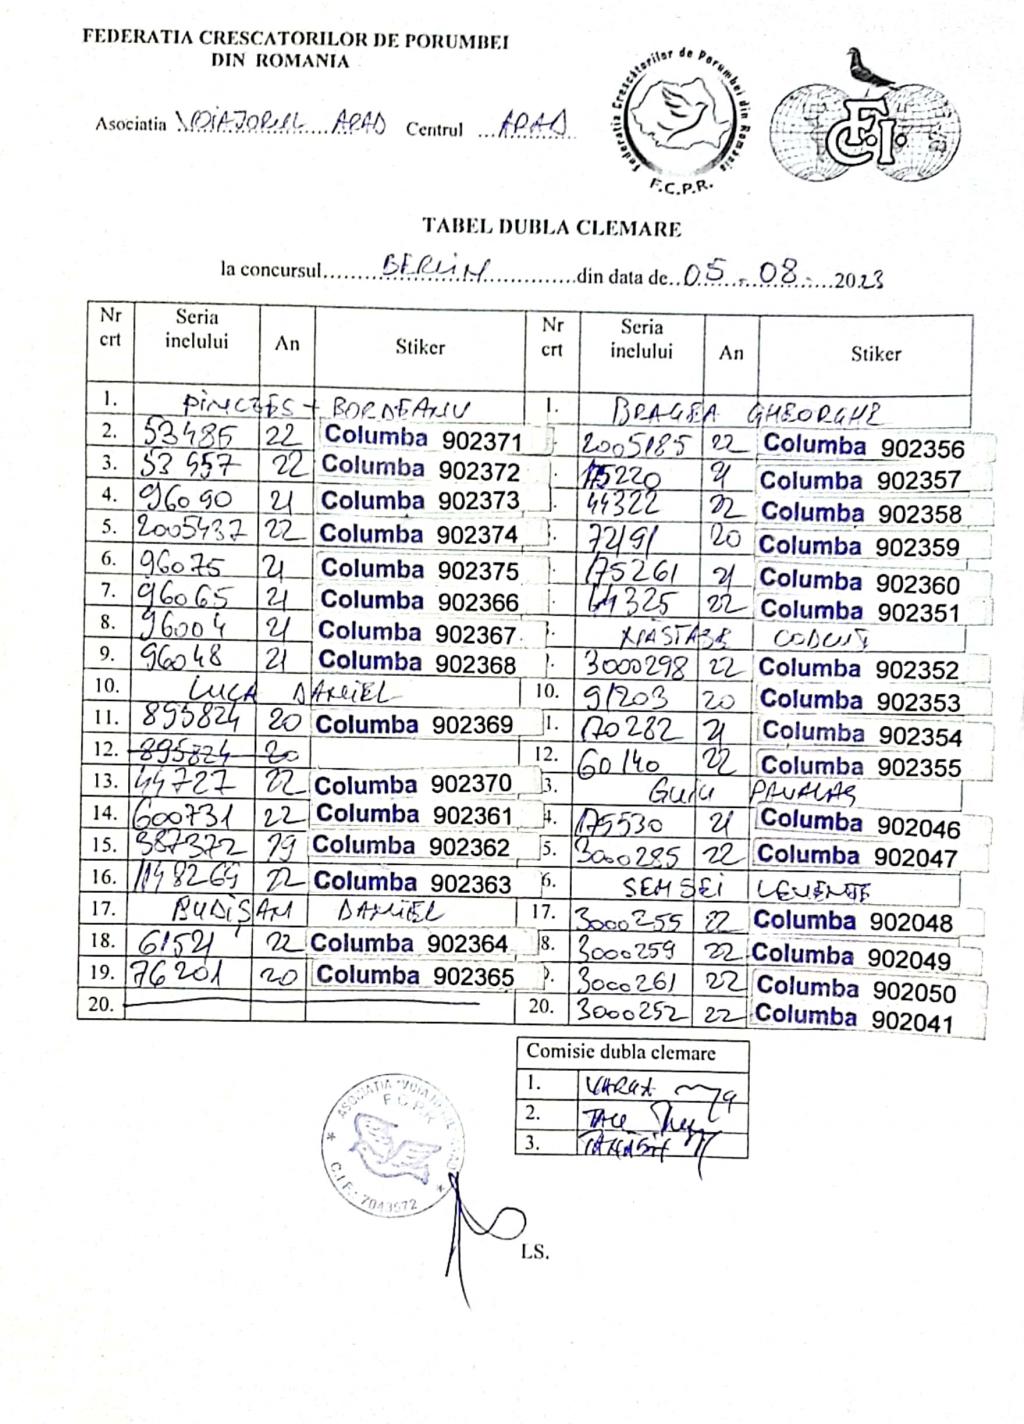 FEDERATIA CRESCATORILOR DE PORUMBEI
DIN ROMANIA
Federatia Crescătorilor de Porumbei din Romania
F.C.P.R.
F.C.I.
Asociatia VOIAJORUL ARAD Centrul ARAD
TABEL DUBLA CLEMARE
la concursul BERLIN din data de 05.08.2023
Nr crt Seria inelului An Stiker Nr crt Seria inelului An Stiker
1. PINCZES + BORDEANU 1. BRAGEA GHEORGHE
2. 53485 22 Columba 902371 2005185 22 Columba 902356
3. 53957 22 Columba 902372 175220 21 Columba 902357
4. 96090 21 Columba 902373 44322 22 Columba 902358
5. 2005437 22 Columba 902374 72191 20 Columba 902359
6. 96075 21 Columba 902375 175261 21 Columba 902360
7. 96065 21 Columba 902366 44325 22 Columba 902351
8. 96004 21 Columba 902367
9. 96048 21 Columba 902368 3000298 22 Columba 902352
10. LUCA DANIEL 10. 91203 20 Columba 902353
11. 895824 20 Columba 902369 1. 170282 21 Columba 902354
12. 895824 20 12. 60140 22 Columba 902355
13. 44727 22 Columba 902370 3.
14. 600731 22 Columba 902361 4. 175530 21 Columba 902046
15. 387372 19 Columba 902362 5. 3000285 22 Columba 902047
16. 1148269 22 Columba 902363 6. SEMSEI LEVENTE
17. BUDIȘAN DANIEL 17. 3000255 22 Columba 902048
18. 61521 22 Columba 902364 8. 3000259 22 Columba 902049
19. 76201 20 Columba 902365 9. 3000261 22 Columba 902050
20. 20. 3000252 22 Columba 902041
Comisie dubla clemare
1. VARGA
2.
3.
ASOCIATIA "VOIAJORUL
F.C.P.R.
C.I.F.: 7043572
LS.